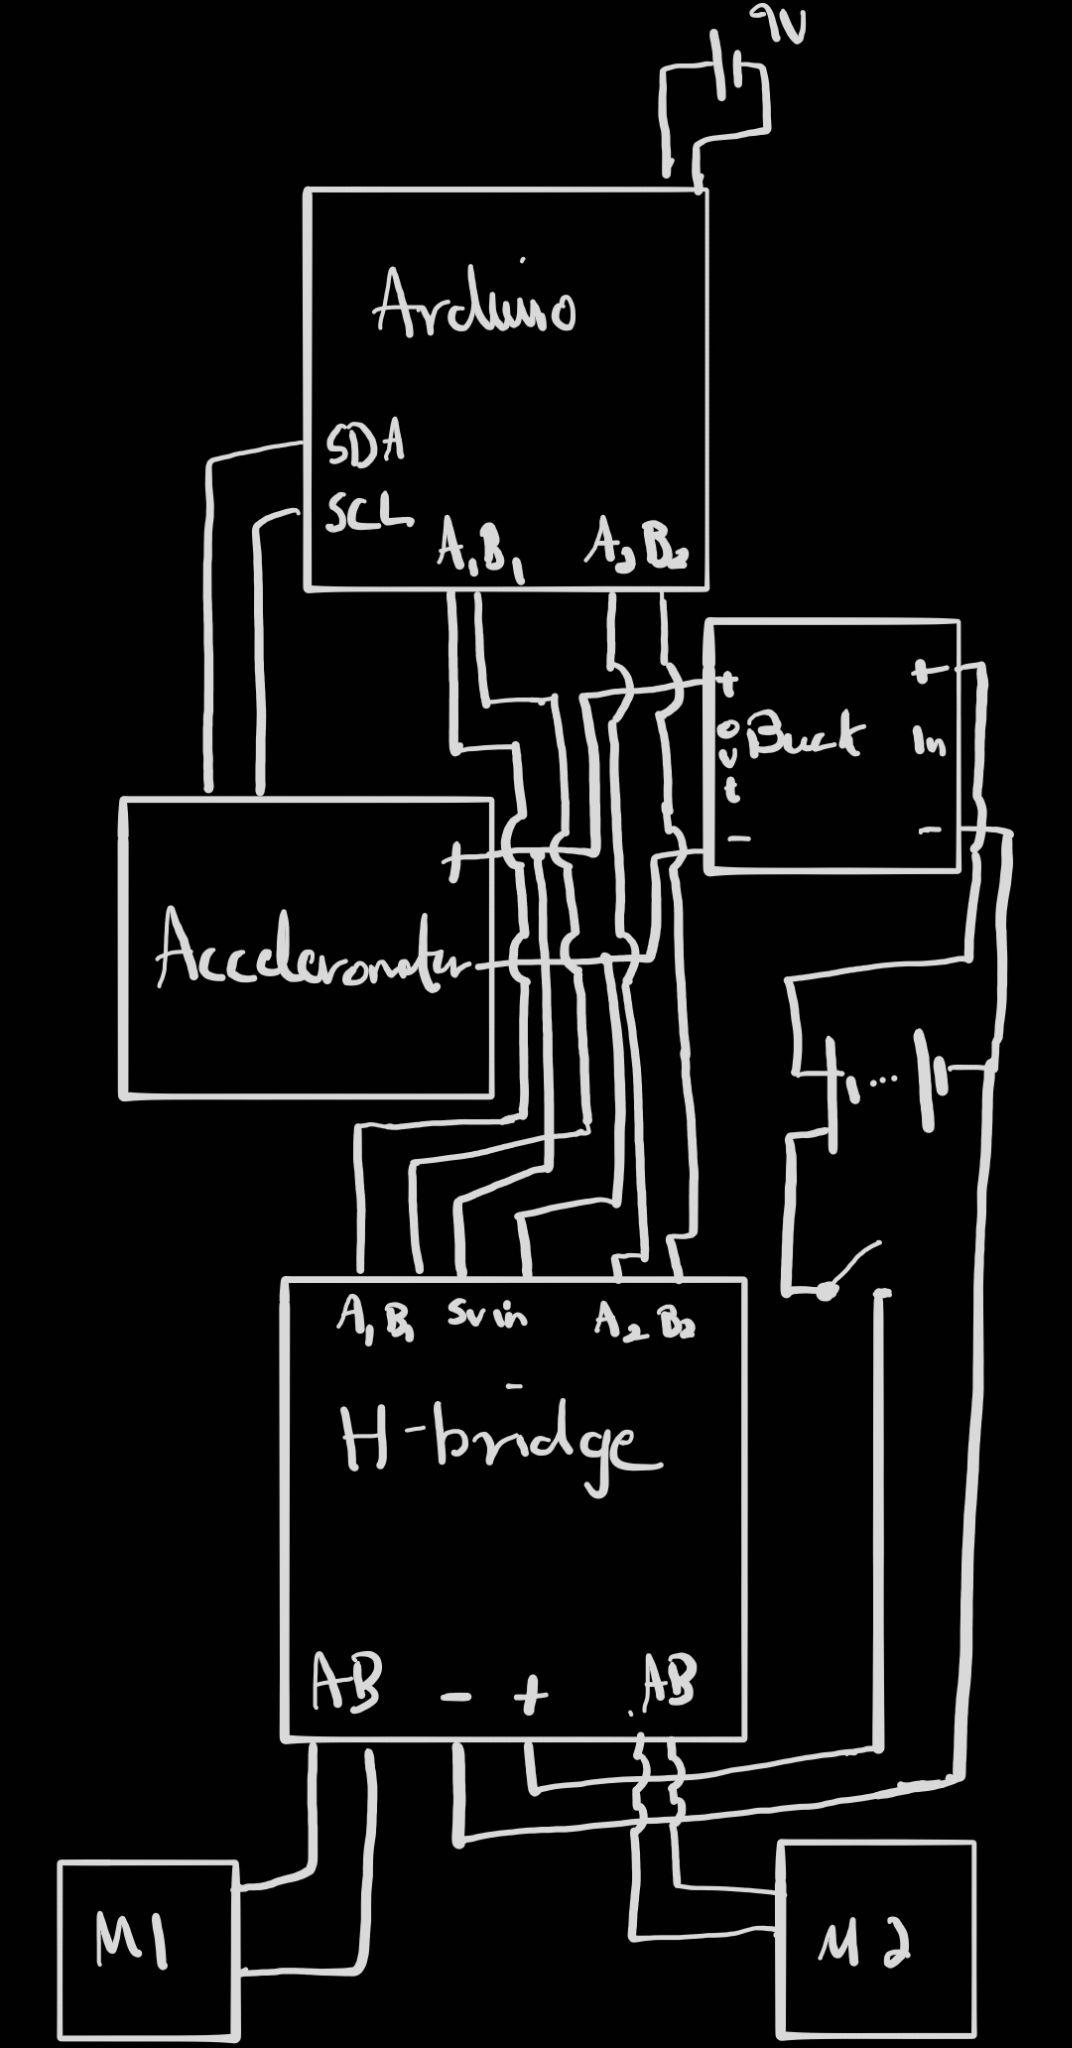 9V
Arduino
SDA
SCL
A1 B1 A2 B2
+ +
out Buck In
- -
+
Acceleromater -
A1 B1 5v in A2 B2
-
H-bridge
AB - + AB
M1
M2